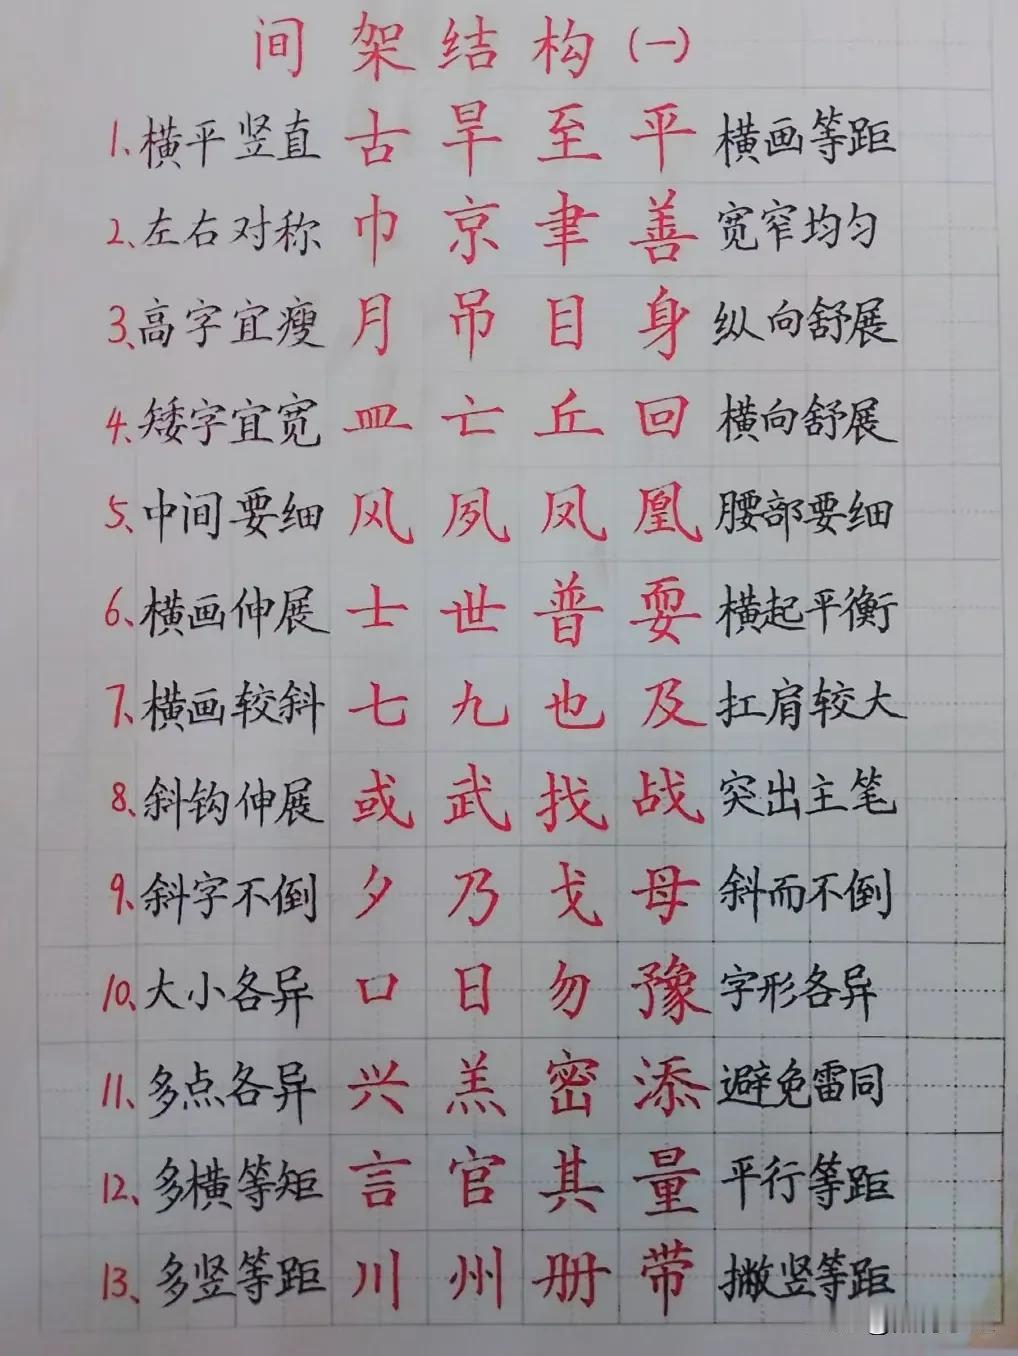 间架结构(一)
1、横平竖直 古 旱 至 平 横画等距
2、左右对称 巾 京 聿 善 宽窄均匀
3、高字宜瘦 月 吊 目 身 纵向舒展
4、矮字宜宽 皿 亡 丘 回 横向舒展
5、中间要细 风 夙 凤 凰 腰部要细
6、横画伸展 士 世 普 耍 横起平衡
7、横画较斜 七 九 也 及 扛肩较大
8、斜钩伸展 或 武 找 战 突出主笔
9、斜字不倒 夕 乃 戈 母 斜而不倒
10、大小各异 口 日 勿 豫 字形各异
11、多点各异 兴 羔 密 添 避免雷同
12、多横等矩 言 官 其 量 平行等距
13、多竖等距 川 州 册 带 撇竖等距